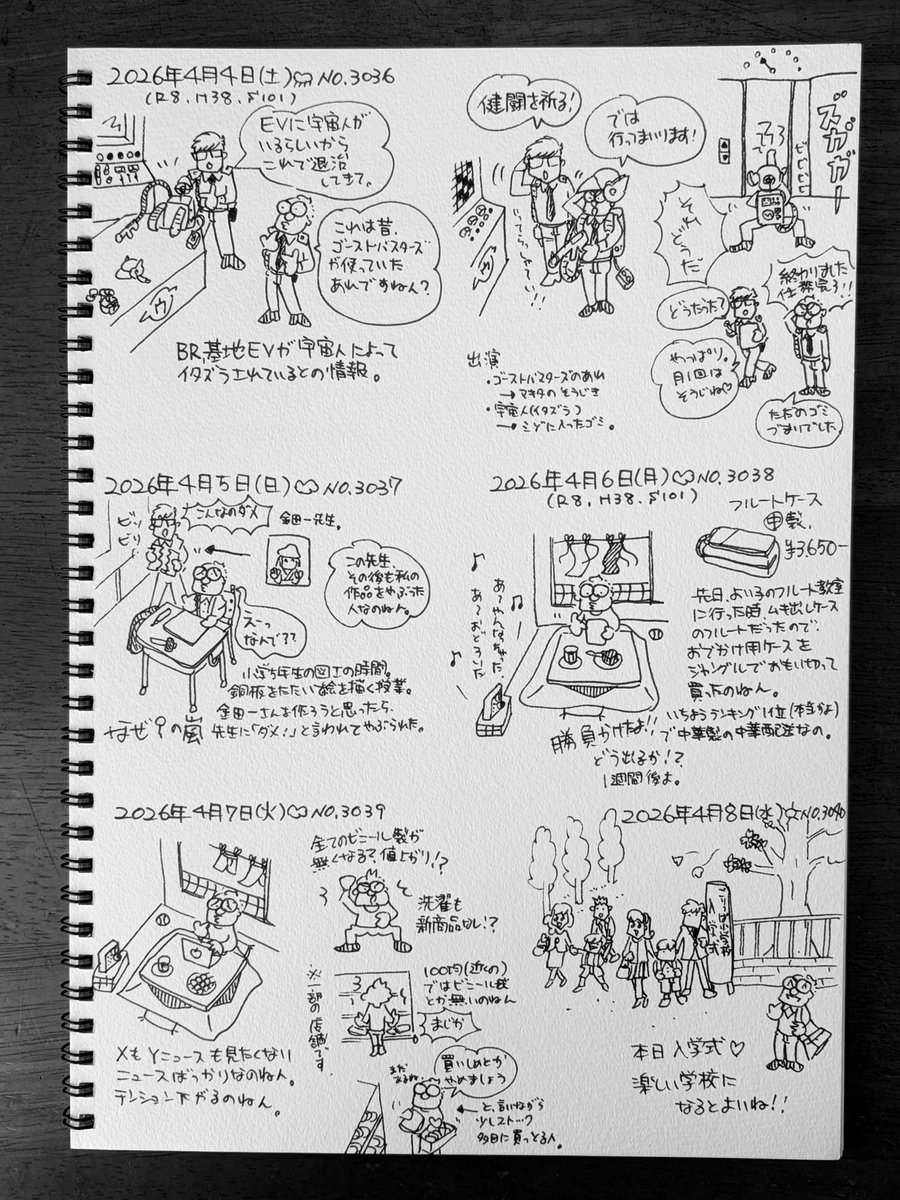 2026年4月4日(土) NO.3036
(R8.H38.S101)
EVに宇宙人が
いるらしいから
これで退治
してきて。
これは昔、
ゴーストバスターズ
が使っていた
あれですねん?
BR基地EVが宇宙人によって
イタズラされているとの情報。
健闘を祈る!
では
行ってまいります!
いってらっしゃーい
ズガガガー
それどうだ
どうだった?
終わりました
任務完了!!
やっぱり。
月1回は
そうじね♡
ただのゴミ
づまりでした
出演
・ゴーストバスターズのあれ
→マキタのそうじき
・宇宙人(イタズラ)
→ミゾに入ったゴミ。
2026年4月5日(日)♡NO.3037
ビリ
ビリ
こんなのダメ
金田一先生。
この先生、
その後も私の
作品をやぶった
人なのねん。
えーっ
なんで??
小学5年生の図工の時間。
銅板をたたい絵を描く授業。
金田一さんを作ろうと思ったら、
先生に「ダメ!」と言われてやぶられた。
なぜ?の嵐
2026年4月6日(月)♡NO.3038
(R8.H38.S101)
フルートケース
中製.
¥3,650-
あ〜やんなっちゃった
あ〜おどろいた
先日、よいるのフルート教室
に行った時、ムキ出しケース
のフルートだったので、
おでかけ用ケースを
ジャングルでおもい切って
買ったのねん。
いちよランキング1位(本当かよ)
で中華製の中華配送なの。
勝負かけたよ!!
どう出るか!?
1週間後よ。
2026年4月7日(火)♡NO.3039
全てのビニール製が
無くなる?値上がり!?
洗濯も
新商品なし!?
100均(近くの)
ではビニール袋
とか無いのねん
まじか
※一部の店舗です
XもYニュースも見たくない
ニュースばっかりなのねん。
テンション下がるのねん。
まだ
あるね
買いしめとか
やめましょう
← と、言いながら
少しストック
多目に買っとる人。
2026年4月8日(水)NO.3040
入学式
本日入学式♡
楽しい学校に
なるとよいね!!